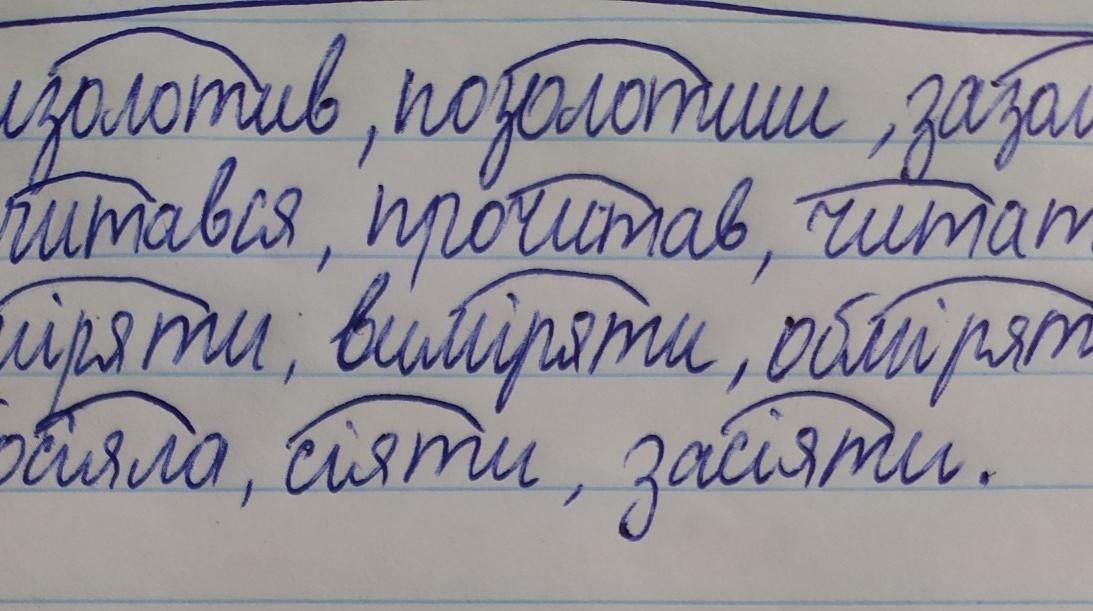 изолотив, позолотити, зазол
читався, прочитав, читат
міряти, виміряти, обмірят
осіяла, сіяти, засіяти.